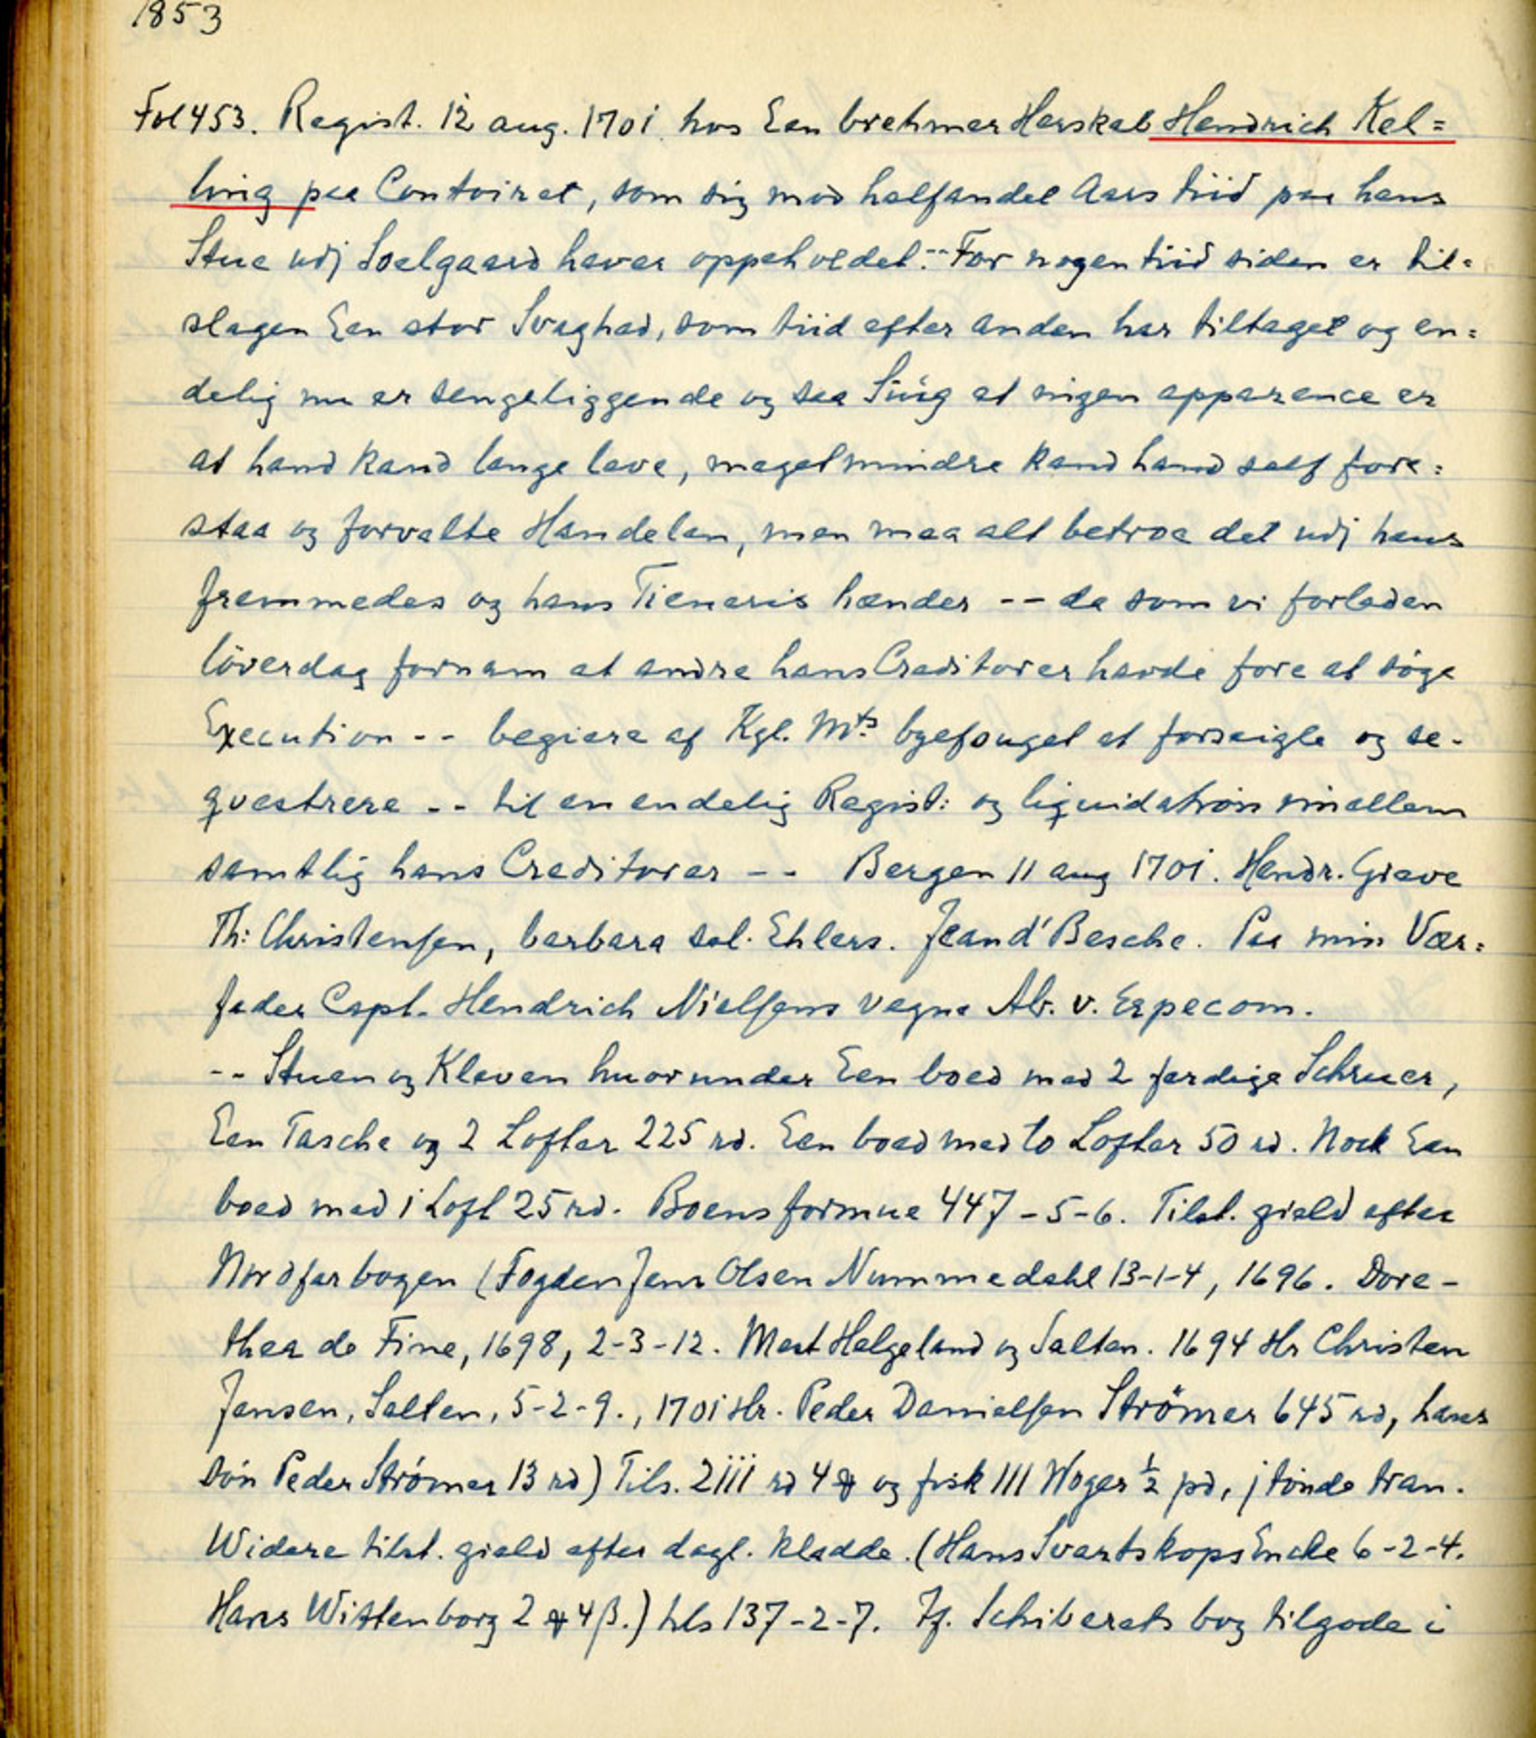 1853
Fol 453. Regist. 12 aug. 1701 hos Een brehmer Herskab Hendrich Kel=
ling paa Contoiret, som sig mod halfandet Aars tiid paa hans
Stue udj Soelgaard haver oppeholdet.-- For nogen tiid siden er til=
slagen Een stor Svaghed, som tiid efter anden har tiltaget og en=
delig nu er sengeliggende og saa Siug at ingen apparence er
at hand kand lenge leve, meget mindre kand hand self fore=
staa og forvalte Handelen, men maa alt betroe det udj hans
fremmedes og hans Tieneris hænder -- da som vi forleden
löverdag fornam at andre hans Creditorer havde fore at söge
Execution -- begiere af Kgl. Mts. byefouget at forseigle og se-
qvestrere -- til en endelig Regist: og liquidation imellem
samtlig hans Creditorer -- Bergen 11 aug 1701. Hendr. Greve
Th: Christensen, barbara sal. Ehlers. Jean d'Besche. Paa min Vær=
fader Capt. Hendrich Nielsens vegne Ab. v. Erpecom.
-- Stuen og Kleven huorunder Een boed med 2 færdige Schruer,
Een Tasche og 2 Lofter 225 rd. Een boed med to Lofter 50 rd. Nock Een
boed med 1 Loft 25 rd. Boens formue 447-5-6. Tilst. gield efter
Nordfarbogen (Fogden Jens Olsen Nummedahl 13-1-4, 1696. Dore-
thea de Fine, 1698, 2-3-12. Mest Helgeland og Salten. 1694 Hr Christen
Jensen, Salten, 5-2-9., 1701 Hr. Peder Danielsen Strömer 645 rd, hans
Sön Peder Strömer 13 rd) Tils. 2111 rd 4 og fisk 111 Woger ½ pd, j tönde tran.
Widere tilst. gield efter dagl. Kladde. (Hans Svartskops Encke 6-2-4.
Hans Wittenborg 2 4 β.) tils 137-2-7. If. Schiberets bog tilgode i